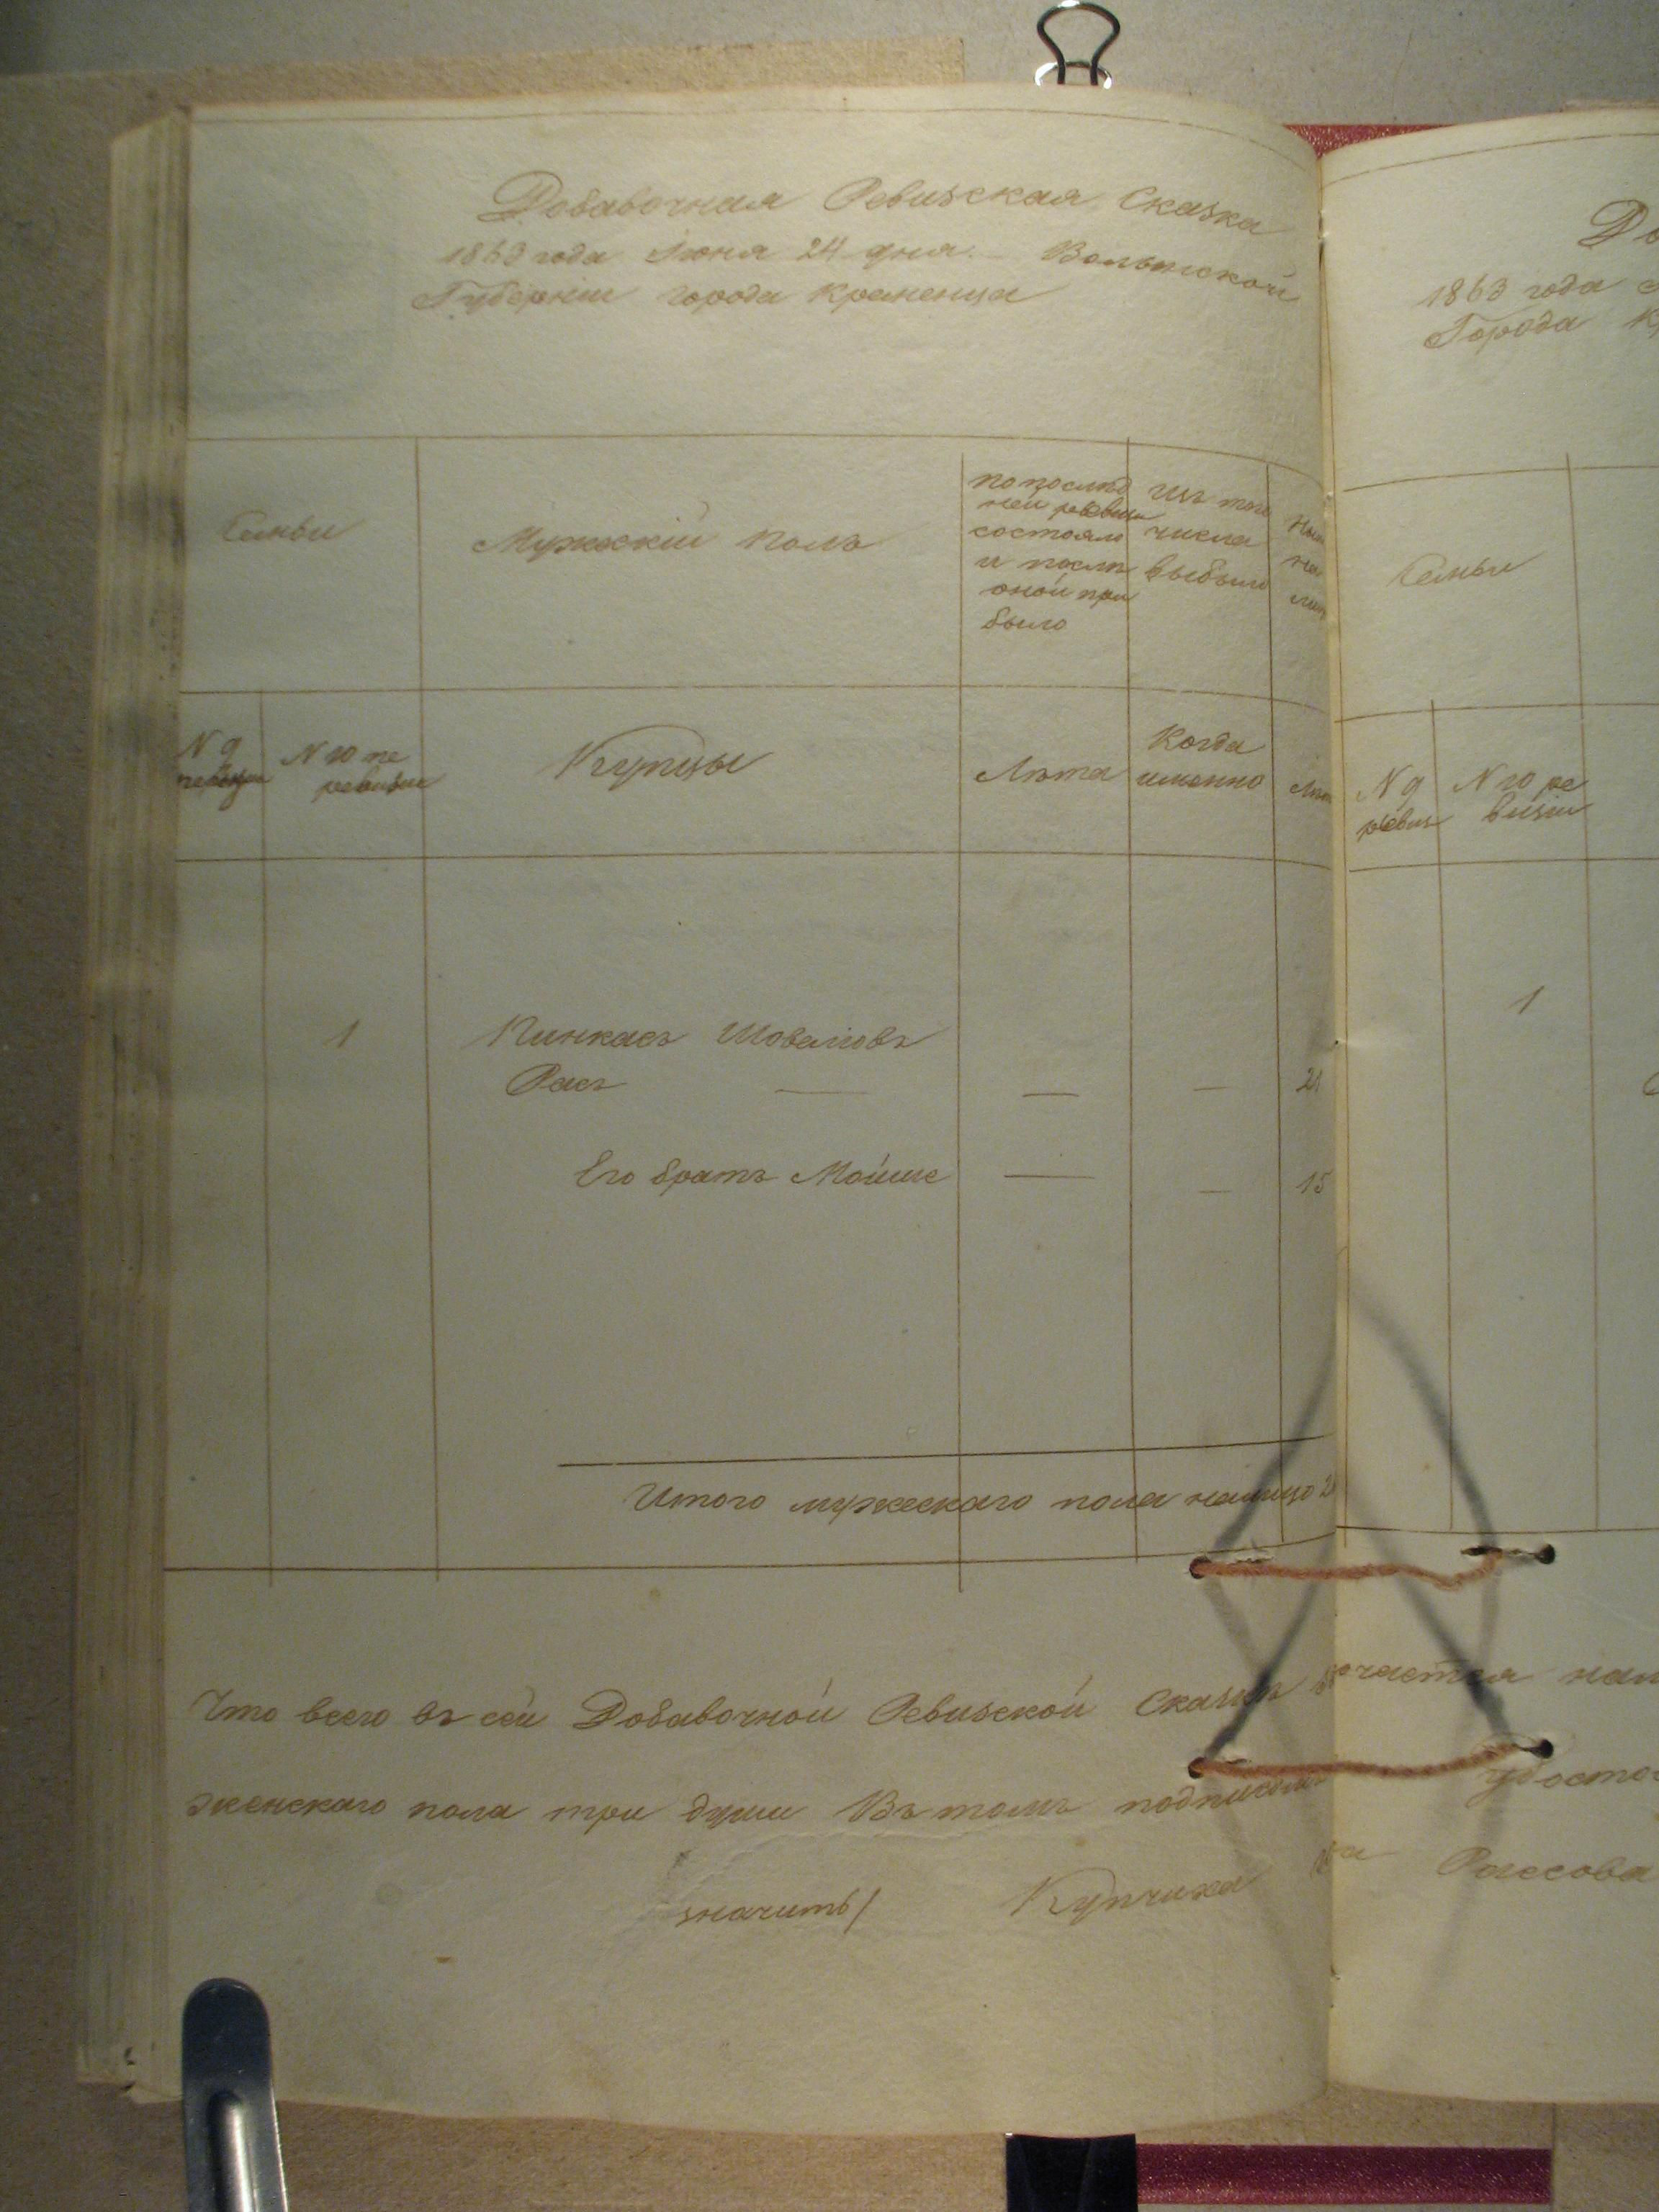 Добавочная Ревизская Сказка
1863 года Июня 24 дня. Волынской
Губернии города Кременца
Семьи
Мужескій полъ
по послѣд
ней ревизіи
состояло
и послѣ
оной при
было
Изъ того
числа
выбыло
N 9
ревизіи
N 10 ре
ревизіи
Купцы
Лѣта
Когда
именно
Лѣта
1
Пинкасъ Шоваловъ
Расъ — — — 21
Его братъ Мойше — — 15
Итого мужескаго пола налицо 2
Что всего въ сей Добавочной Ревизской Сказкѣ
женскаго пола три души Въ томъ подписомъ
значитъ/ Купчиха
До
1863 года
Города К
Семьи
N 9
ревиз
N 10 ре
визіи
1
Рассова